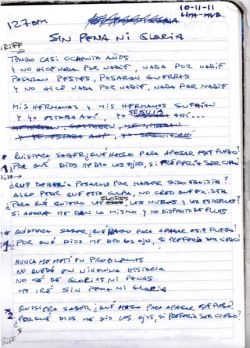 127 BPM
10-11-11
LIMA-MVD
SIN PENA NI GLORIA
RIFF
TENGO CASI OCHENTA AÑOS
Y NO HICE NADA POR NADIE, NADA POR NADIE
PASARON PESTES, PASARON GUERRAS
Y NO HICE NADA POR NADIE, NADA POR NADIE
MIS HERMANAS Y MIS HERMANOS SUFRÍAN
Y YO ESTABA AHÍ, YO SEGUÍA AHÍ...
QUISIERA SABER ¿QUÉ HAGO PARA APAGAR ESTE FUEGO?
¿POR QUÉ DIOS ME DIO LOS OJOS, SI PREFERÍA SER CIEGO?
¿QUÉ DEBERÍA PASARME POR HABER SIDO EGOÍSTA?
ALGO PEOR QUE ESTA CULPA, NO CREO QUE EXISTA
PARA QUÉ QUIERO LAS FLORES LAS NUBES, Y LAS ESTRELLAS?
SI AHORA ME DAN LO MISMO Y NO DISFRUTO DE ELLAS
QUISIERA SABER, ¿QUÉ HAGO PARA APAGAR ESTE FUEGO?
¿POR QUÉ DIOS ME DIO LOS OJOS, SI PREFERÍA SER CIEGO?
NUNCA ME METÍ EN PROBLEMAS
NO QUEDÓ EN NINGUNA HISTORIA
NO SÉ DE GLORIAS NI PENAS
ME IRÉ SIN PENA NI GLORIA
QUISIERA SABER, ¿QUÉ HAGO PARA APAGAR ESTE FUEGO?
¿POR QUÉ DIOS ME DIO LOS OJOS, SI PREFERÍA SER CIEGO?
RIFF